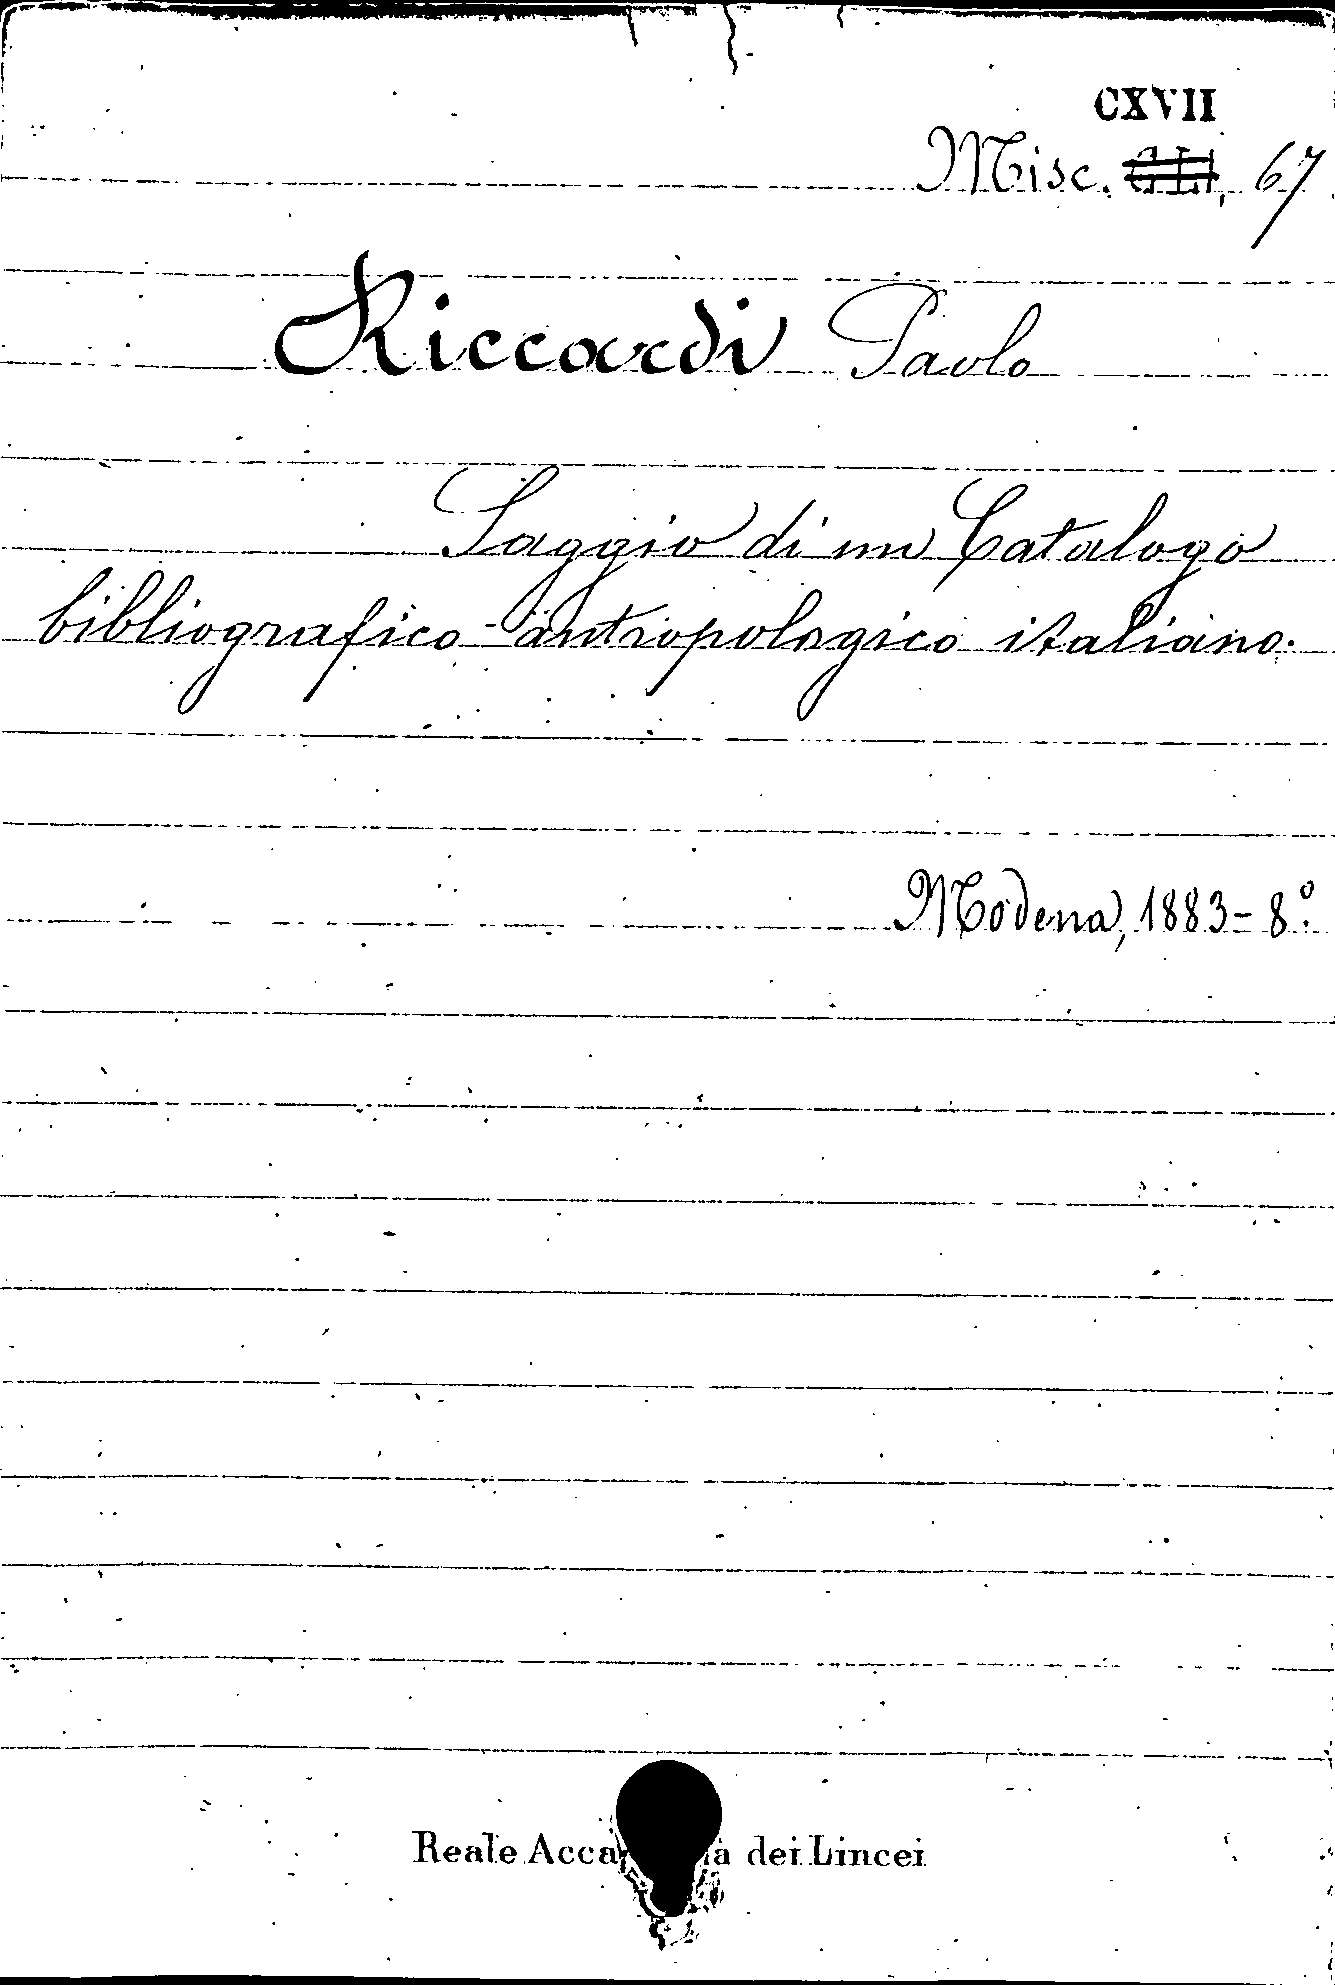 CXVII
Misc. , 67
Riccardi Paolo
Saggio di un Catalogo
bibliografico-antropologico italiano.
Modena, 1883 = 8.º
Reale dei Lincei